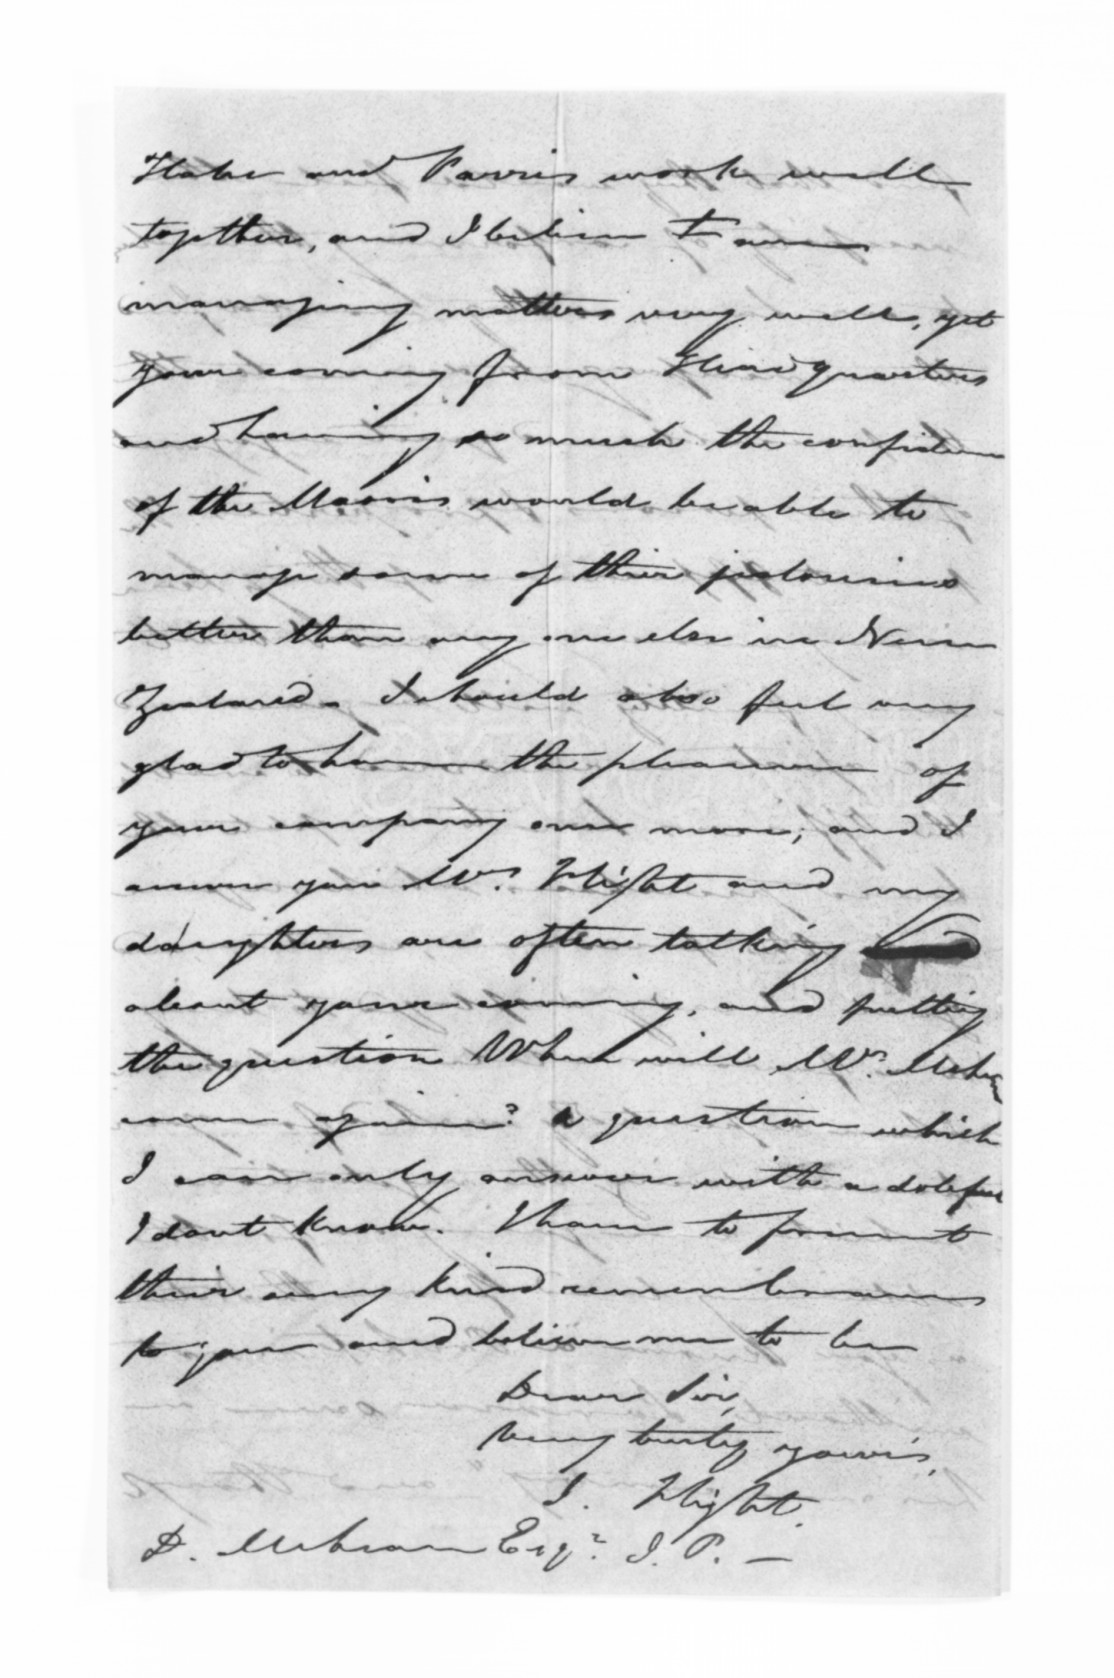 Halse and Parris work well
together, and I believe I am
managing matters very well, yet
your coming from Head quarters
and having so much the confidence
of the Maoris would be able to
manage some of their jealousies
better than any one else in New
Zealand. I should also feel very
glad to have the pleasure of
your company once more; and I
assure you Mrs. Flight and my
daughters are often talking
about your coming, and putting
the question When will Mr. McLean
come again? a question which
I can only answer with a doleful
I dont know. I have to present
their very kind remembrances
to you and believe me to be
Dear Sir,
Very truly yours,
J. Flight.
D. McLean Esqr. J. P. —